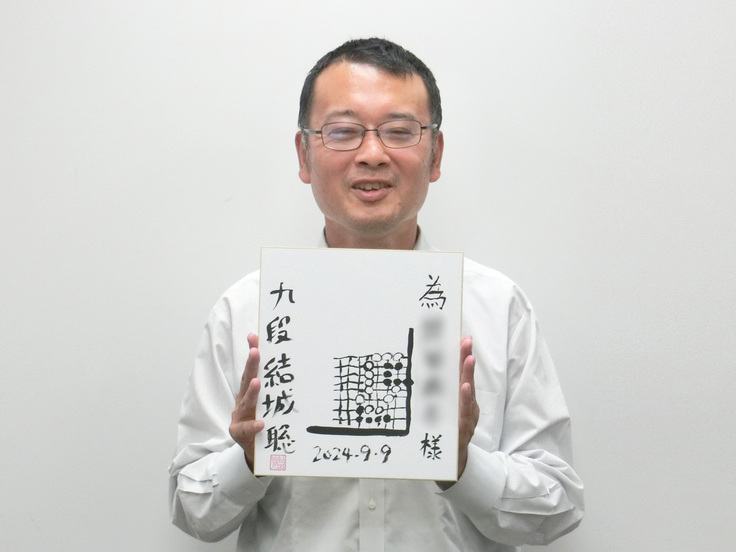 為
様
九段 結城聡
2024.9.9